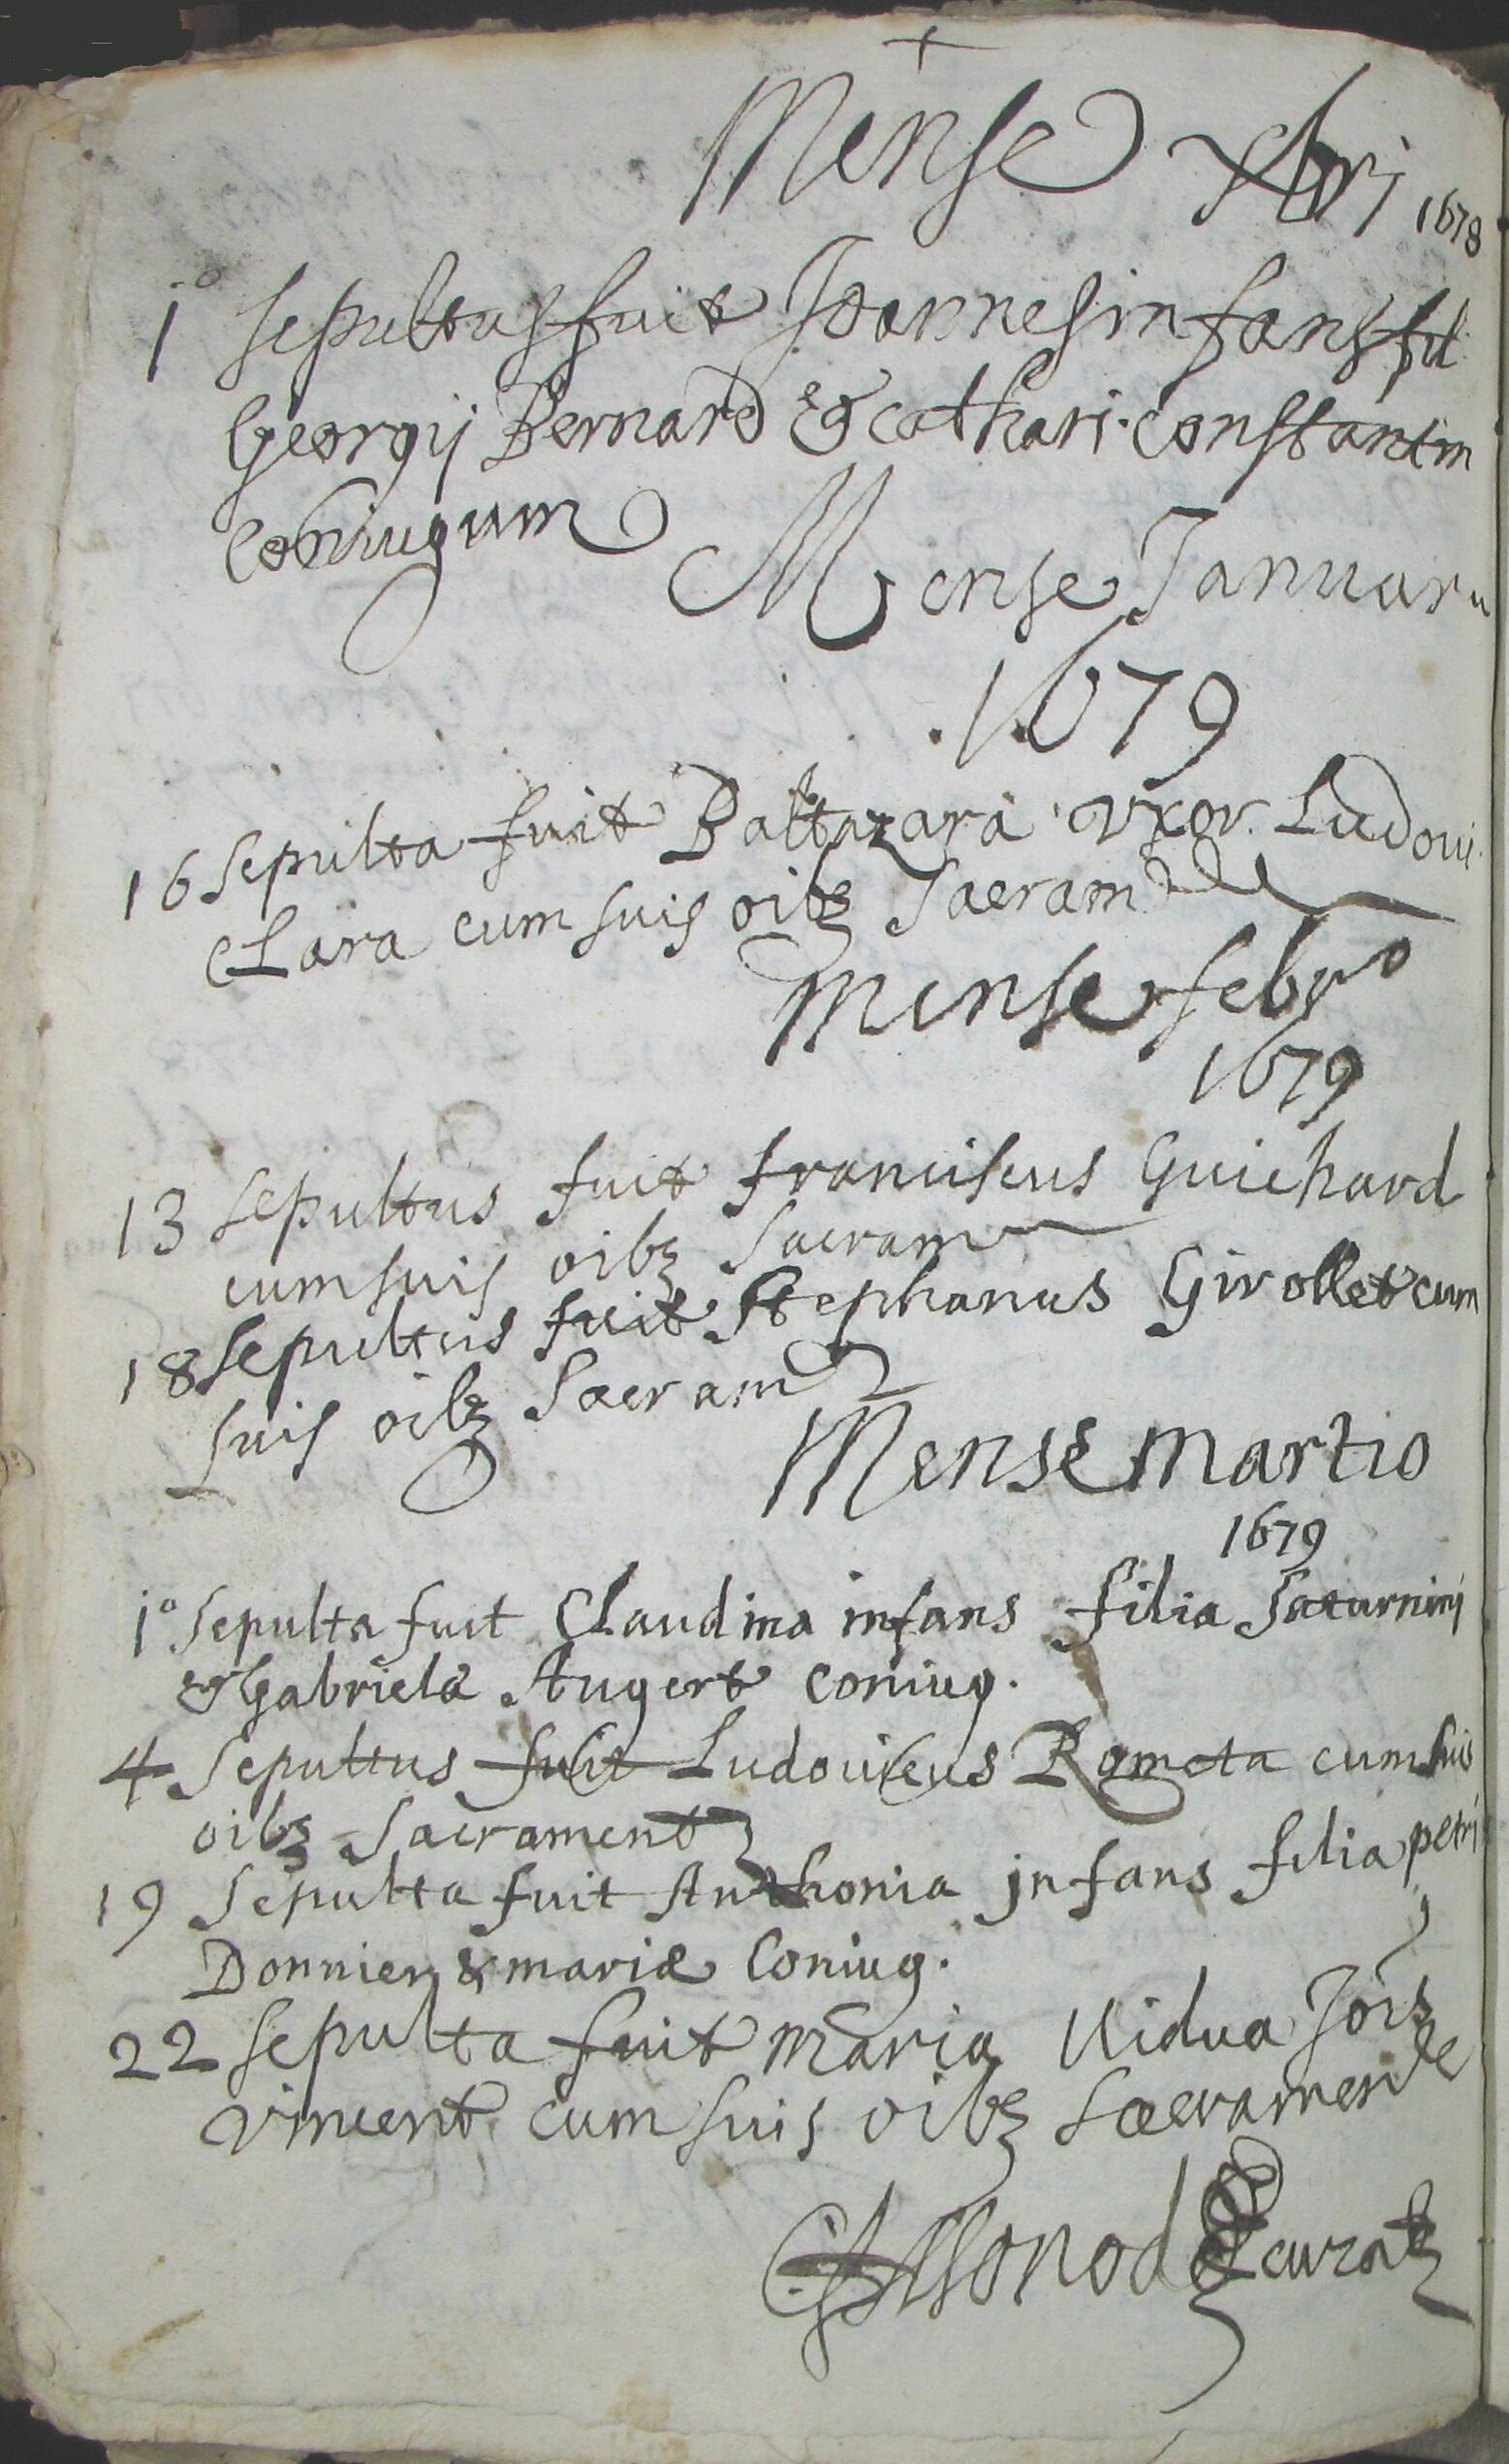 Mense xbri 1678
1º sepultus fuit Joannes infans fil
Georgij Bernard & cathari. constantin
Coniugum
Mense Januarii
1679
16 sepulta fuit Baltazara vxor Ludovi.
Clara cum suis oibz Sacram
Mense febro
1679
13 sepultus fuit franciscus Guichard
cum suis oibz Sacram
18 sepultus fuit Stephanus Girollet cum
suis oibz Sacram
Mense martio
1679
1º sepulta fuit Claudina infans filia Saturnini
& Gabrielæ Augert coniug.
4 Sepultus fuit Ludovicus Rometa cum suis
oibz Sacrament
19 Sepulta fuit Anthonia infans filia petri
Donnier & mariæ Coniug.
22 sepulta fuit maria Vidua Jois
vincent cum suis oibz Sacrament
curat